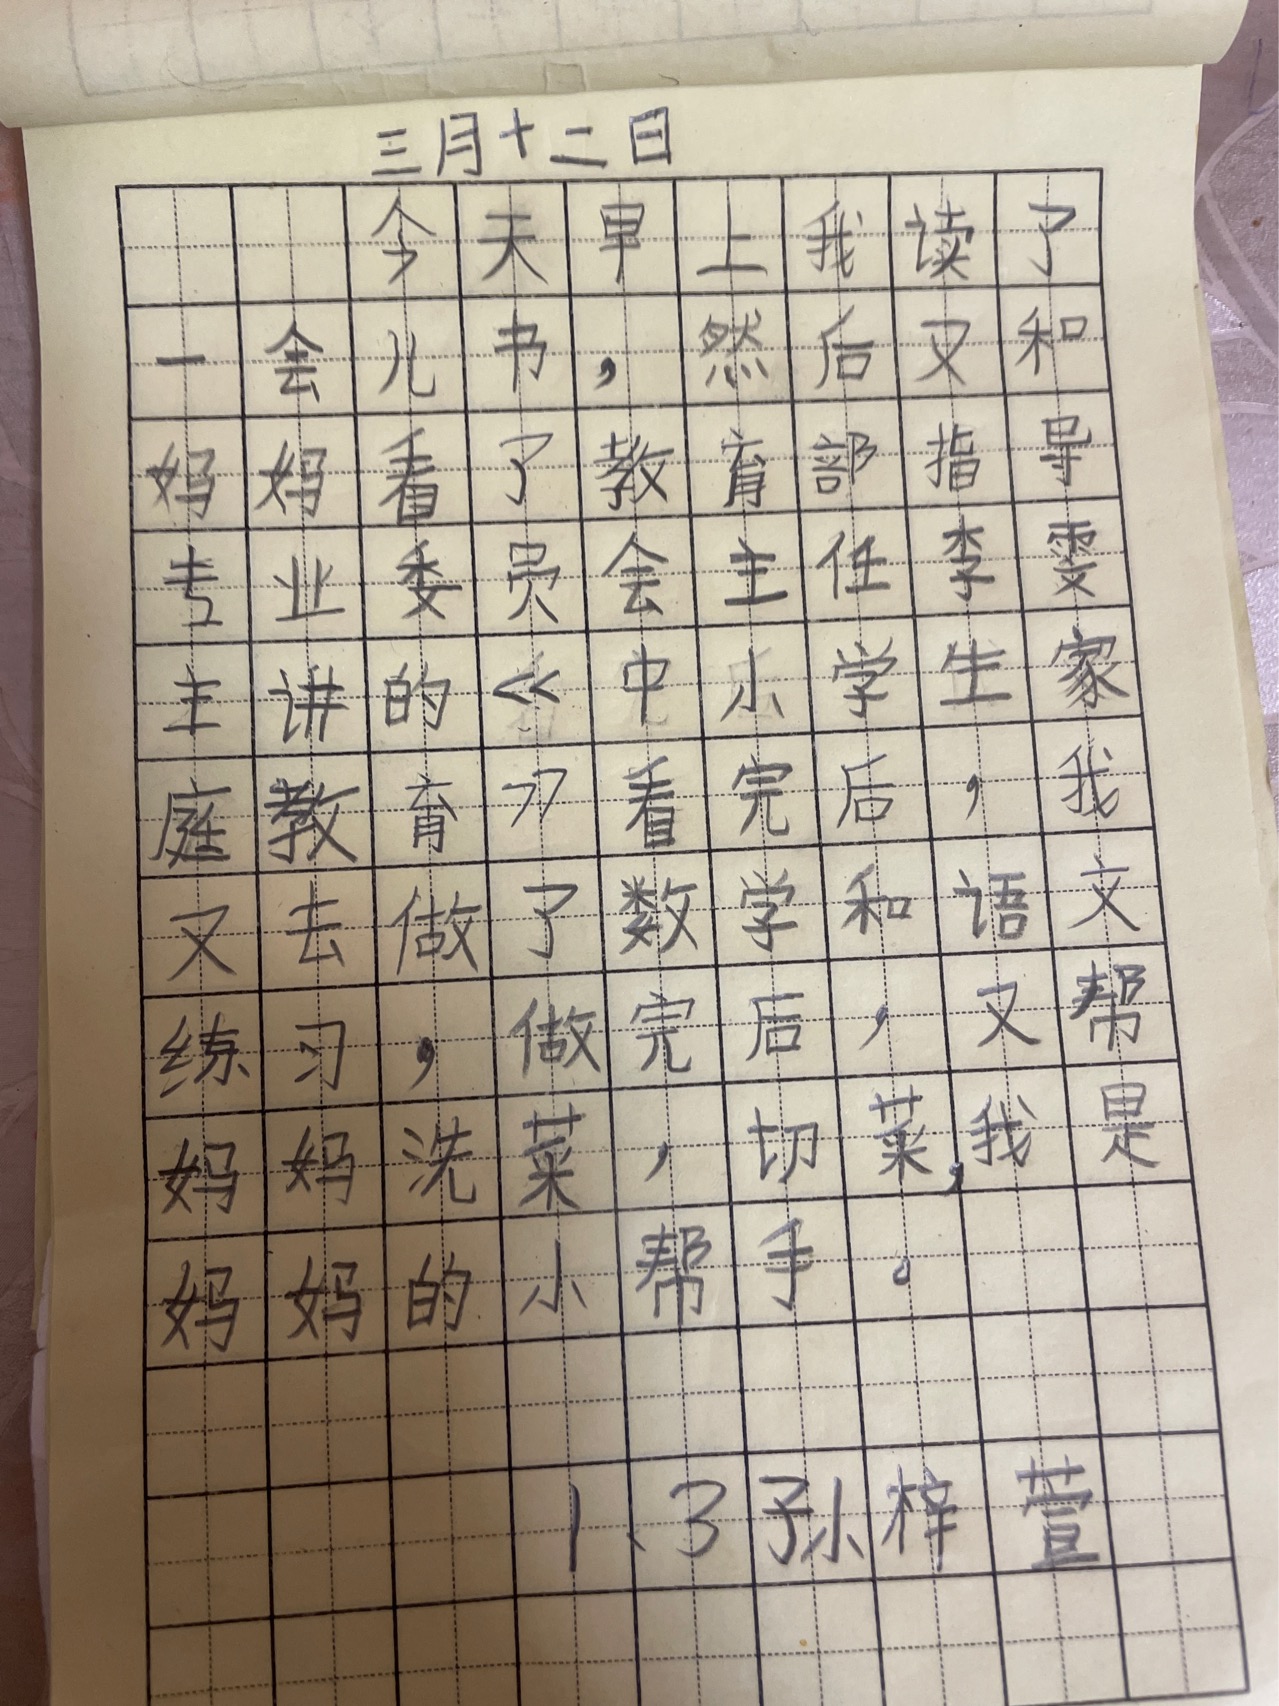 三月十二日
今天早上我读了
一会儿书，然后又和
妈妈看了教育部指导
专业委员会主任李雯
主讲的《中小学生家
庭教育》看完后，我
又去做了数学和语文
练习，做完后，又帮
妈妈洗菜，切菜，我是
妈妈的小帮手。
1、3孙梓萱